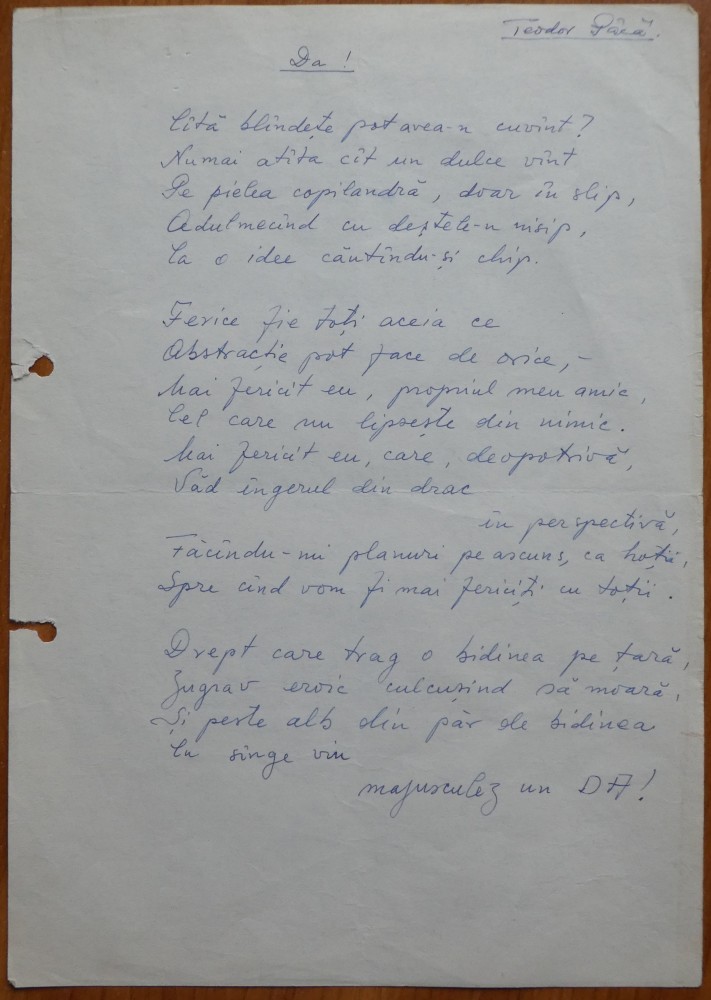 Teodor Pâcă.
Da !
Cîtă blîndețe pot avea-n cuvînt?
Numai atîta cît un dulce vînt
Pe pielea copilandră, doar în slip,
Adulmecînd cu deștele-n nisip,
La o idee căutîndu-și chip.
Ferice fie toți aceia ce
Abstracție pot face de orice, –
Mai fericit eu, propriul meu amic,
Cel care nu lipsește din nimic.
Mai fericit eu, care, deopotrivă,
Văd îngerul din drac
în perspectivă,
Făcîndu-mi planuri pe ascuns, ca hoții,
Spre cînd vom fi mai fericiți cu toții.
Drept care trag o bidinea pe țară,
Zugrav eroic culcușind să moară,
Și peste alb din păr de bidinea
Cu sînge viu
majusculez un DA!